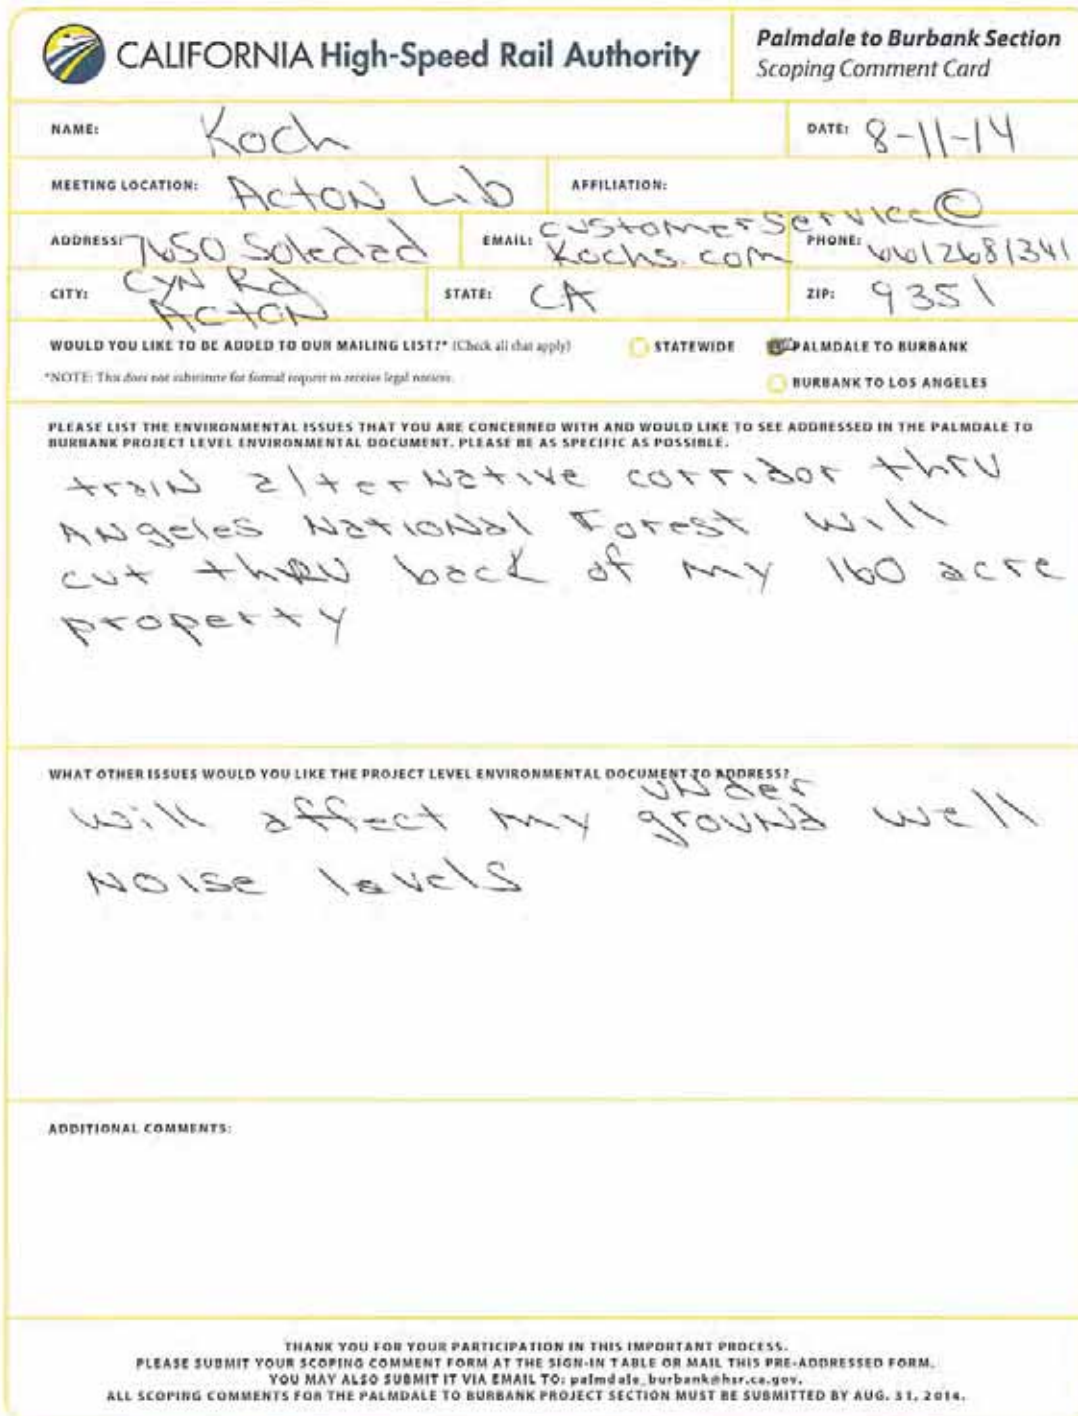 CALIFORNIA High-Speed Rail Authority
Palmdale to Burbank Section
Scoping Comment Card
NAME: Koch
DATE: 8-11-14
MEETING LOCATION: Acton Lib
AFFILIATION:
ADDRESS: 7650 Soledad
CYN Rd
EMAIL: customerservice@
Kochs.com
PHONE: 6612681341
CITY: Acton
STATE: CA
ZIP: 9351
WOULD YOU LIKE TO BE ADDED TO OUR MAILING LIST?* (Check all that apply)
STATEWIDE
PALMDALE TO BURBANK
*NOTE: This does not substitute for formal request to receive legal notices.
BURBANK TO LOS ANGELES
PLEASE LIST THE ENVIRONMENTAL ISSUES THAT YOU ARE CONCERNED WITH AND WOULD LIKE TO SEE ADDRESSED IN THE PALMDALE TO
BURBANK PROJECT LEVEL ENVIRONMENTAL DOCUMENT. PLEASE BE AS SPECIFIC AS POSSIBLE.
train alternative corridor thru
Angeles National Forest will
cut thru back of my 160 acre
property
WHAT OTHER ISSUES WOULD YOU LIKE THE PROJECT LEVEL ENVIRONMENTAL DOCUMENT TO ADDRESS?
under
will affect my ground well
Noise levels
ADDITIONAL COMMENTS:
THANK YOU FOR YOUR PARTICIPATION IN THIS IMPORTANT PROCESS.
PLEASE SUBMIT YOUR SCOPING COMMENT FORM AT THE SIGN-IN TABLE OR MAIL THIS PRE-ADDRESSED FORM.
YOU MAY ALSO SUBMIT IT VIA EMAIL TO: palmdale_burbank@hsr.ca.gov.
ALL SCOPING COMMENTS FOR THE PALMDALE TO BURBANK PROJECT SECTION MUST BE SUBMITTED BY AUG. 31, 2014.